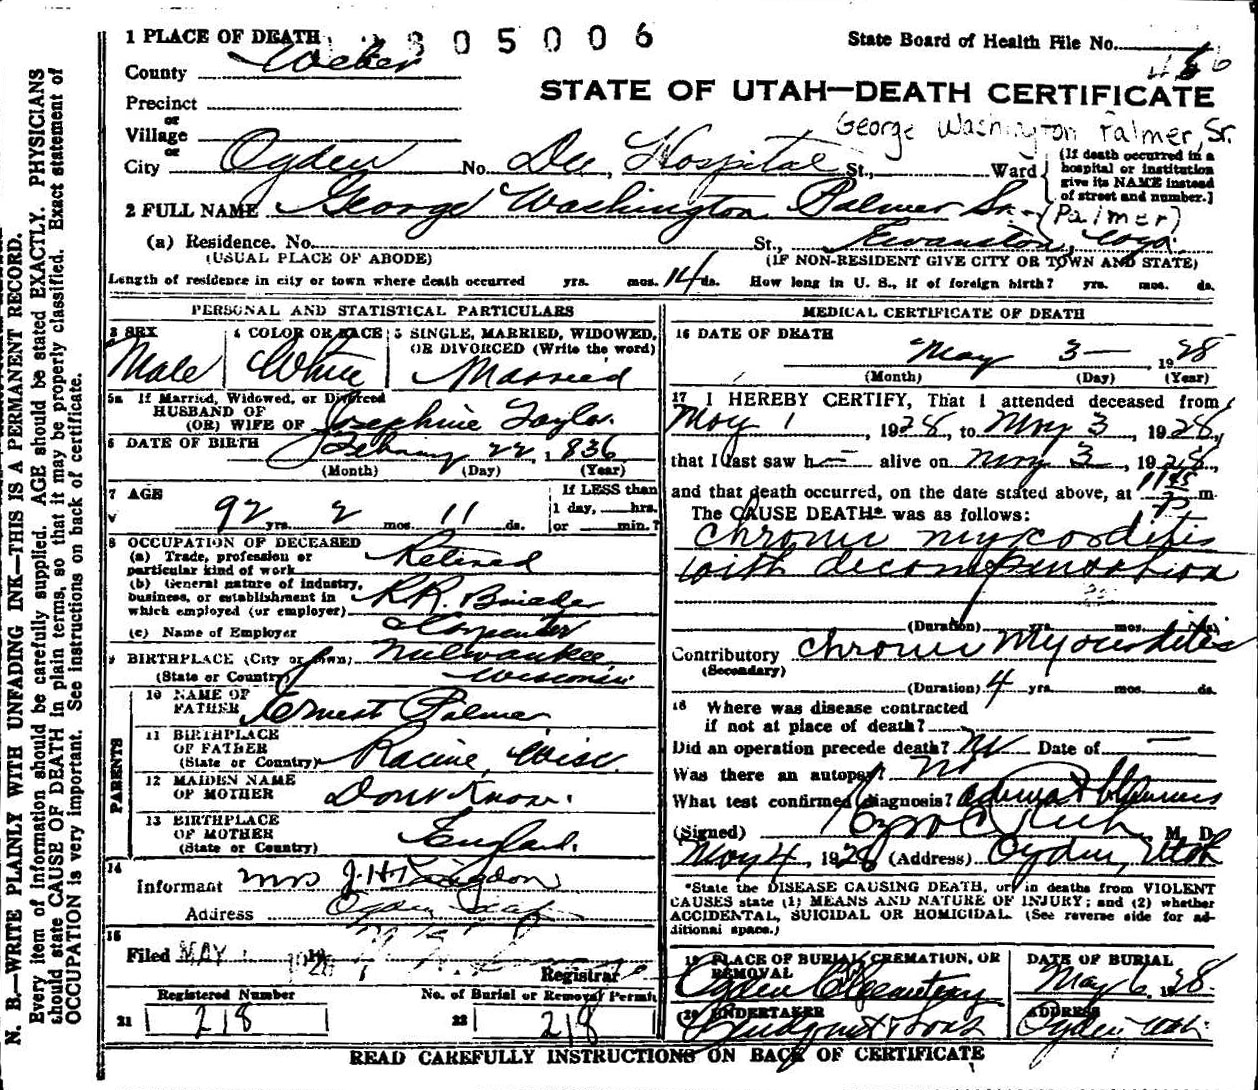 1 PLACE OF DEATH 2805006
State Board of Health File No. 456
County Weber
STATE OF UTAH—DEATH CERTIFICATE
Precinct
or
Village
or
George Washington Palmer, Sr.
City Ogden No. Dee Hospital St., Ward
(If death occurred in a
hospital or institution
give its NAME instead
of street and number.]
2 FULL NAME George Washington Palmer Sr.
(Palmer)
(a) Residence. No. St., Evanston, Wyo.
(USUAL PLACE OF ABODE) (IF NON-RESIDENT GIVE CITY OR TOWN AND STATE)
Length of residence in city or town where death occurred yrs. mos. 14 ds. How long in U. S., if of foreign birth? yrs. mos. ds.
PERSONAL AND STATISTICAL PARTICULARS
3 SEX
Male
4 COLOR OR RACE
White
5 SINGLE, MARRIED, WIDOWED,
OR DIVORCED (Write the word)
Married
5a If Married, Widowed, or Divorced
HUSBAND OF
(OR) WIFE OF Josephine Taylor
6 DATE OF BIRTH February 22, 1836
(Month) (Day) (Year)
7 AGE
92 yrs. 2 mos. 11 ds.
If LESS than
1 day, hrs.
or min.?
8 OCCUPATION OF DECEASED
(a) Trade, profession or
particular kind of work Retired
(b) General nature of industry,
business, or establishment in
which employed (or employer) R.R.
Carpenter
(c) Name of Employer
9 BIRTHPLACE (City or Town) Milwaukee,
(State or Country) Wisconsin
PARENTS
10 NAME OF
FATHER Ernest Palmer
11 BIRTHPLACE
OF FATHER
(State or Country) Racine, Wisc.
12 MAIDEN NAME
OF MOTHER Don't Know.
13 BIRTHPLACE
OF MOTHER
(State or Country) England.
14
Informant Mrs J.H.
Address Ogden Utah
15
Filed MAY 1928
Registrar
Registered Number
21 218
No. of Burial or Removal Permit
22 218
MEDICAL CERTIFICATE OF DEATH
16 DATE OF DEATH
May 3— 1928
(Month) (Day) (Year)
17 I HEREBY CERTIFY, That I attended deceased from
May 1, 1928, to May 3, 1928,
that I last saw h— alive on May 3, 1928,
and that death occurred, on the date stated above, at 1145 P m.
The CAUSE DEATH* was as follows:
Chronic myocarditis
with decompensation
(Duration) yrs. mos. ds.
Contributory Chronic Myocarditis
(Secondary)
(Duration) 4 yrs. mos. ds.
18 Where was disease contracted
if not at place of death?
Did an operation precede death? No Date of —
Was there an autopsy? no
What test confirmed diagnosis?
(Signed) Rich, M. D.
May 4, 1928 (Address) Ogden, Utah
*State the DISEASE CAUSING DEATH, or, in deaths from VIOLENT
CAUSES state (1) MEANS AND NATURE OF INJURY; and (2) whether
ACCIDENTAL, SUICIDAL OR HOMICIDAL. (See reverse side for ad-
ditional space.)
19 PLACE OF BURIAL, CREMATION, OR
REMOVAL
Ogden Cemetery
DATE OF BURIAL
May 6, 1928
20 UNDERTAKER
& Sons
ADDRESS
Ogden, Utah
READ CAREFULLY INSTRUCTIONS ON BACK OF CERTIFICATE
N. B.—WRITE PLAINLY WITH UNFADING INK—THIS IS A PERMANENT RECORD.
Every item of information should be carefully supplied. AGE should be stated EXACTLY. PHYSICIANS
should state CAUSE OF DEATH in plain terms, so that it may be properly classified. Exact statement of
OCCUPATION is very important. See instructions on back of certificate.